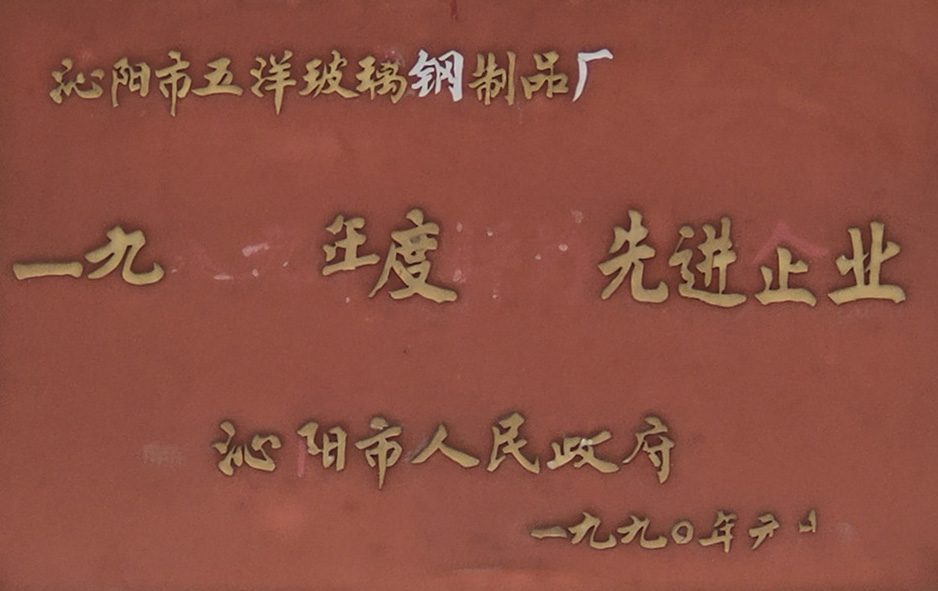 沁阳市五洋玻璃钢制品厂
一九 年度 先进企业
沁阳市人民政府
一九九〇年元月